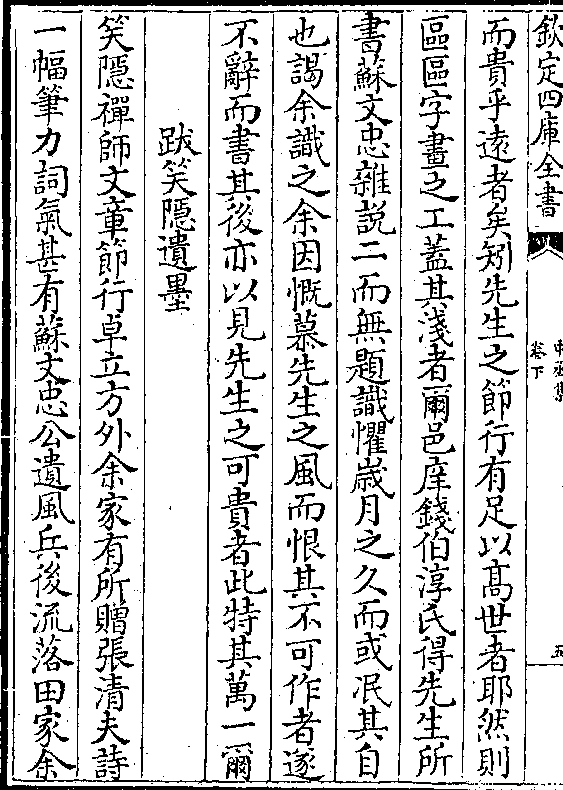 欽定四庫全書
卷下
五
而貴乎遠者矣矧先生之節行有足以髙世者耶然則
區區字畫之工蓋其淺者爾邑庠錢伯淳氏得先生所
書蘇文忠雜説二而無題識懼歳月之久而或泯其自
也謁余識之余因慨慕先生之風而恨其不可作者遂
不辭而書其後亦以見先生之可貴者此特其萬一爾
跋笑隠遺墨
笑隠禪師文章節行卓立方外余家有所贈張清夫詩
一幅筆力詞氣甚有蘇文忠公遺風兵後流落田家余